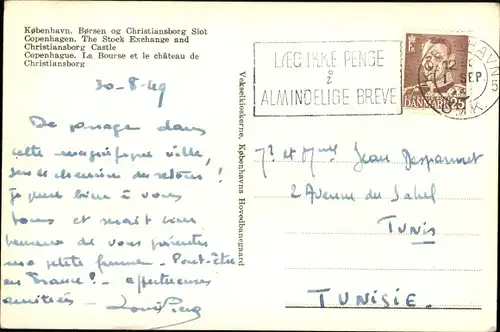 København. Børsen og Christiansborg Slot
Copenhagen. The Stock Exchange and
Christiansborg Castle
Copenhague. La Bourse et le château de
Christiansborg
30-8-49
De passage dans
cette magnifique ville,
sur le chemin du retour!
Je pense bien à vous
tous et serait bien
heureux de vous présenter
ma petite femme - Peut-être
en France! - affectueuses
amitiés -
Vekselkioskerne, Københavns Hovedbanegaard
LÆG IKKE PENGE
I
ALMINDELIGE BREVE
1 SEP
DANMARK 25
Mr et Mme Jean
2 Avenue du Sahel
TUNIS
TUNISIE.